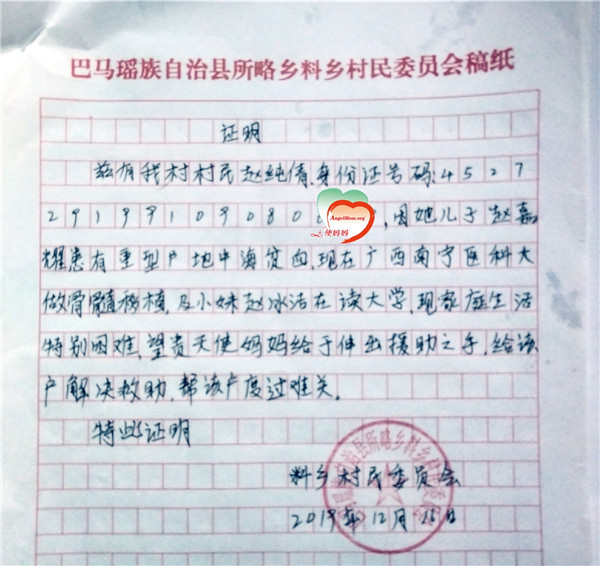 巴马瑶族自治县所略乡料乡村民委员会稿纸
证明
兹有我村村民赵纯倩,身份证号码:4527
29199109080 ,因她儿子赵嘉
AngelMom.org
天使妈妈
耀患有重型β地中海贫血,现在广西南宁医科大
做骨髓移植,及小妹赵冰洁在读大学,现家庭生活
特别困难,望贵天使妈妈给于伸出援助之手,给该
户解决救助,帮该户度过难关。
特此证明
料乡村民委员会
2019年12月 日